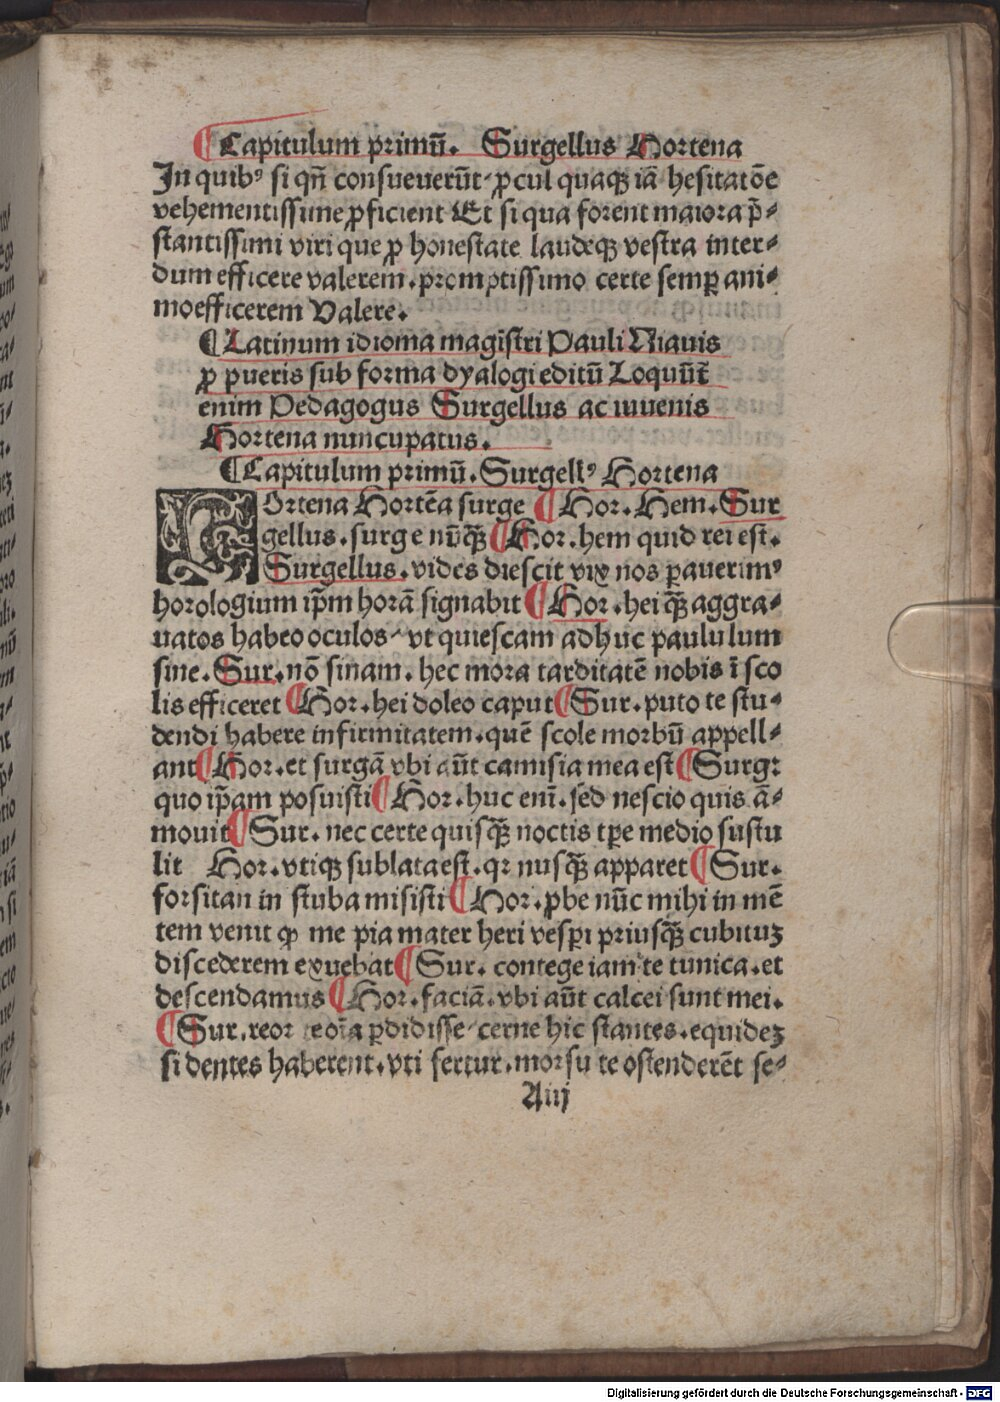 ¶Capitulum primū. Surgellus Hortena
In quibꝰ si qn̄ consueuerūt/ ꝓcul quaqꝫ iā hesitatōe
vehementissime ꝓficient Et si qua forent maiora p̄⸗
stantissimi viri que ꝓ honestate laudeqꝫ vestra inter⸗
dum efficere valerem. promptissimo certe semꝑ ani⸗
moefficerem Valere.
¶Latinum idioma magistri Pauli Niauis
ꝓ pueris sub forma dyalogi editū Loquūt̄
enim Pedagogus Surgellus ac iuuenis
Hortena nuncupatus.
¶Capitulum primū. Surgellꝰ Hortena
Ortena Hortēa surge ¶Hor. Hem. Sur
gellus. surge nūqꝫ̄ ¶Hor. hem quid rei est.
Surgellus. vides diescit vix nos ꝑauerimꝰ
horologium ip̄m horā signabit ¶Hor. hei qꝫ̄ aggra⸗
uatos habeo oculos/ vt quiescam adhuc paululum
sine. Sur. nō sinam. hec mora tarditatē nobis ī sco
lis efficeret ¶Hor. hei doleo caput ¶Sur. puto te stu⸗
dendi habere infirmitatem. quē scole morbū appell⸗
ant ¶Hor. et surgā vbi aūt camisia mea est ¶Surgꝛ
quo ip̄am posuisti ¶Hor. huc eni̅. sed nescio quis ā⸗
mouit ¶Sur. nec certe quisqꝫ̄ noctis tp̄e medio sustu
lit Hor. vtiqꝫ sublata est. qꝛ nusqꝫ̄ apparet ¶Sur.
forsitan in stuba misisti ¶Hor. ꝓbe nūc mihi in mē
tem venit ꝙ me pia mater heri vesꝑi priusqꝫ̄ cubituꝫ
discederem exuebat ¶Sur. contege iam te tunica. et
descendamus ¶Hor. faciā. vbi aūt calcei sunt mei.
¶Sur. reor eoīa ꝑdidisse/ cerne hic stantes. equideꝫ
si dentes haberent. vti fertur. morsu te ostenderēt se⸗
Aiij
Digitalisierung gefördert durch die Deutsche Forschungsgemeinschaft - DFG